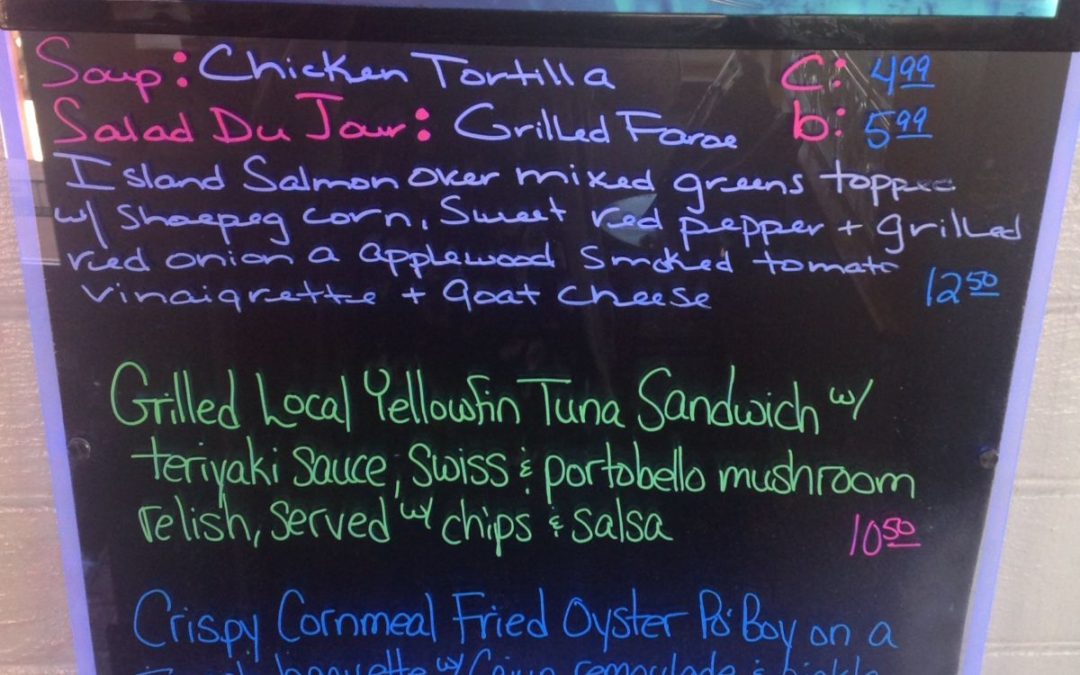 Soup: Chicken Tortilla c: 4.99
Salad Du Jour: Grilled Faroe b: 5.99
Island Salmon over mixed greens topped
w/ Shoepeg corn, Sweet red pepper + grilled
red onion a applewood smoked tomato
vinaigrette + goat cheese 12.50
Grilled Local Yellowfin Tuna Sandwich w/
teriyaki sauce, swiss & portobello mushroom
relish, served w/ chips & salsa 10.50
Crispy Cornmeal Fried Oyster Po'Boy on a
baguette w/ Cajun remoulade &